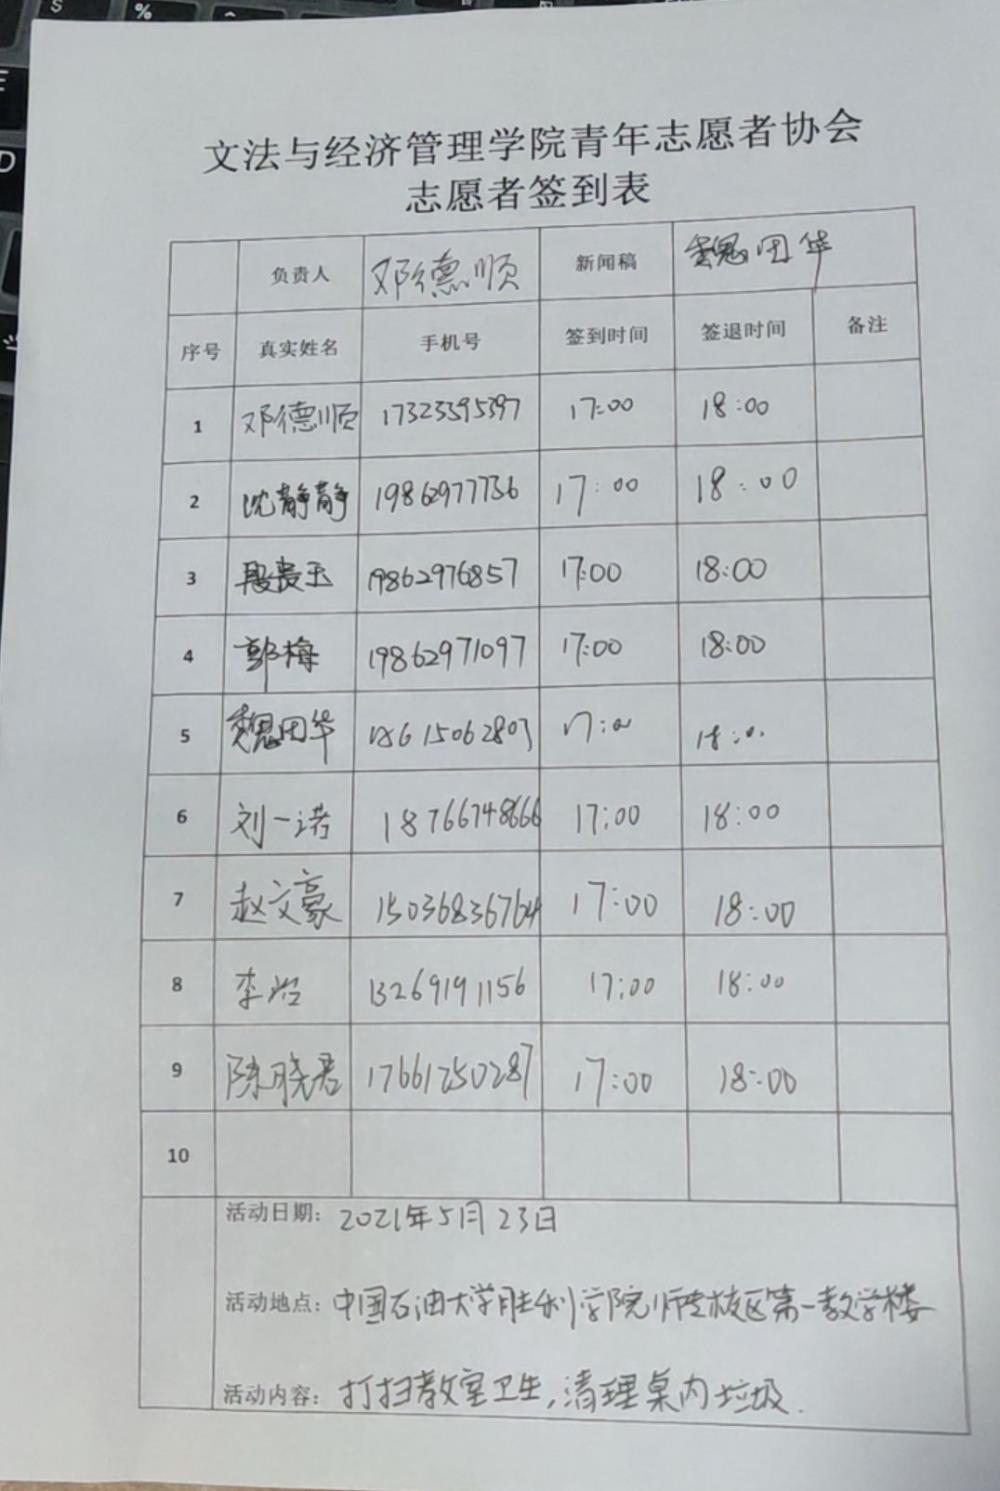 文法与经济管理学院青年志愿者协会
志愿者签到表
负责人 邓德顺 新闻稿 魏田华
序号 真实姓名 手机号 签到时间 签退时间 备注
1 邓德顺 17323395397 17:00 18:00
2 沈静静 19862977736 17:00 18:00
3 段贵玉 19862976857 17:00 18:00
4 郭梅 19862971097 17:00 18:00
5 魏田华 15615062807 17:00 18:00
6 刘一诺 18766748666 17:00 18:00
7 赵文豪 15036836764 17:00 18:00
8 李 13269191156 17:00 18:00
9 陈晓君 17661250287 17:00 18:00
10
活动日期: 2021年5月23日
活动地点: 中国石油大学胜利学院师专校区第一教学楼
活动内容: 打扫教室卫生,清理桌内垃圾.